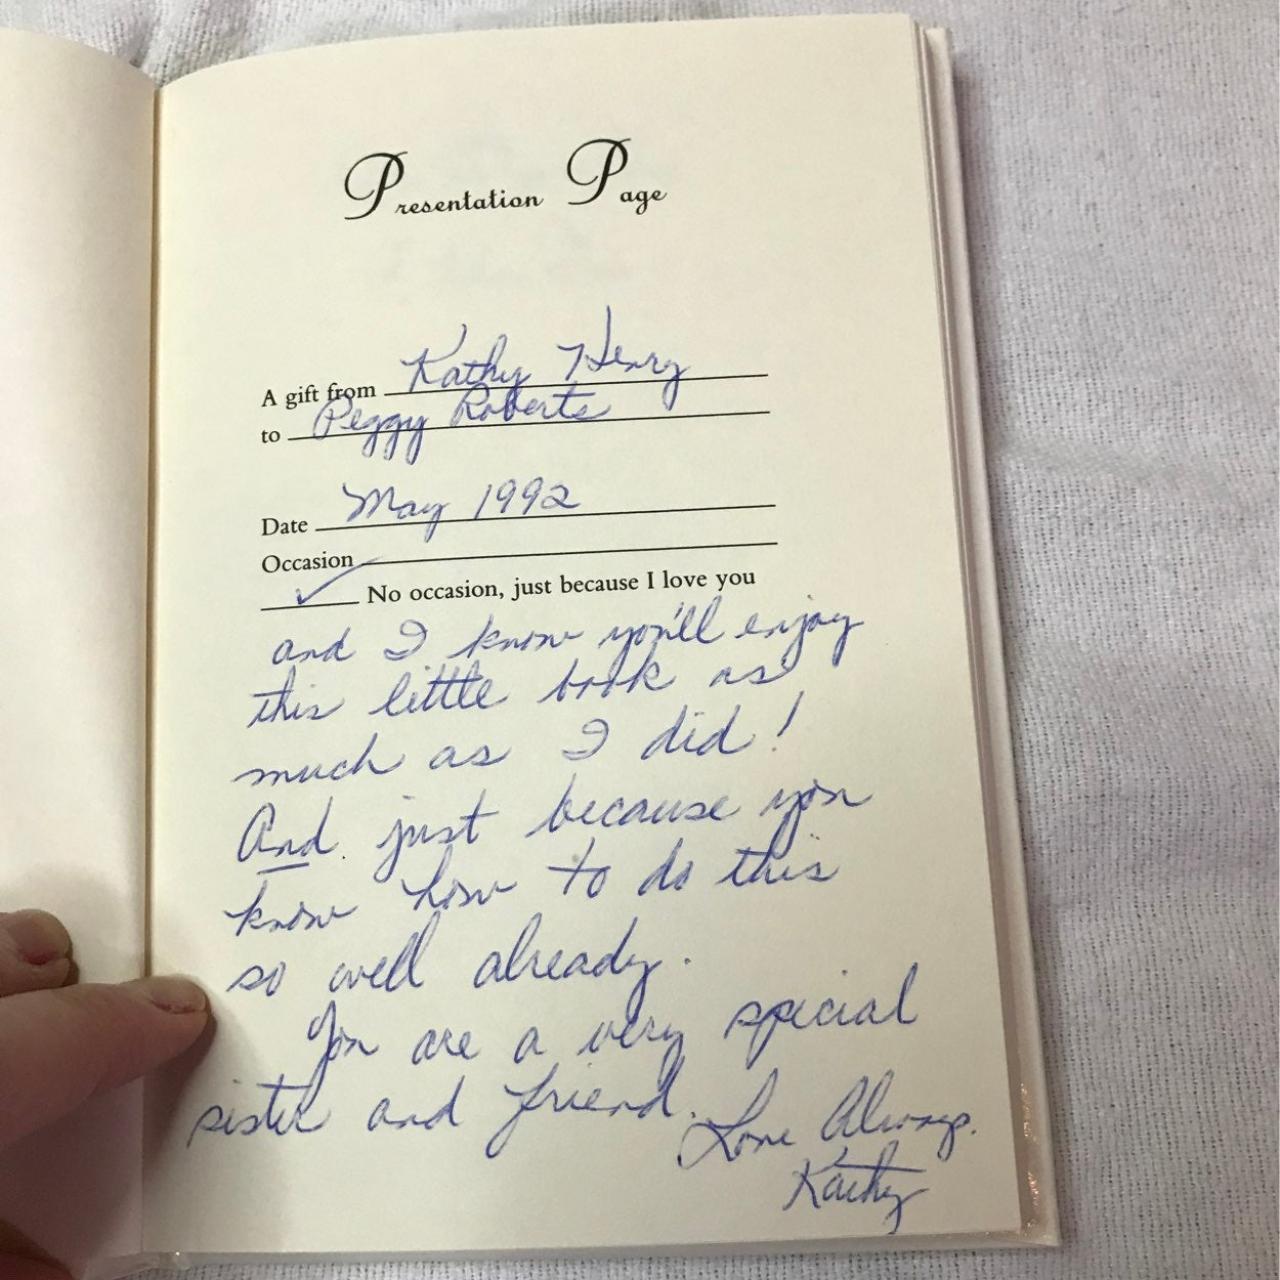 Presentation Page
A gift from Kathy Henry
to Peggy Roberts
Date May 1992
Occasion
✓ No occasion, just because I love you
and I know you'll enjoy
this little book as
much as I did!
And just because you
know how to do this
so well already.
You are a very special
sister and friend.
Love Always.
Kathy